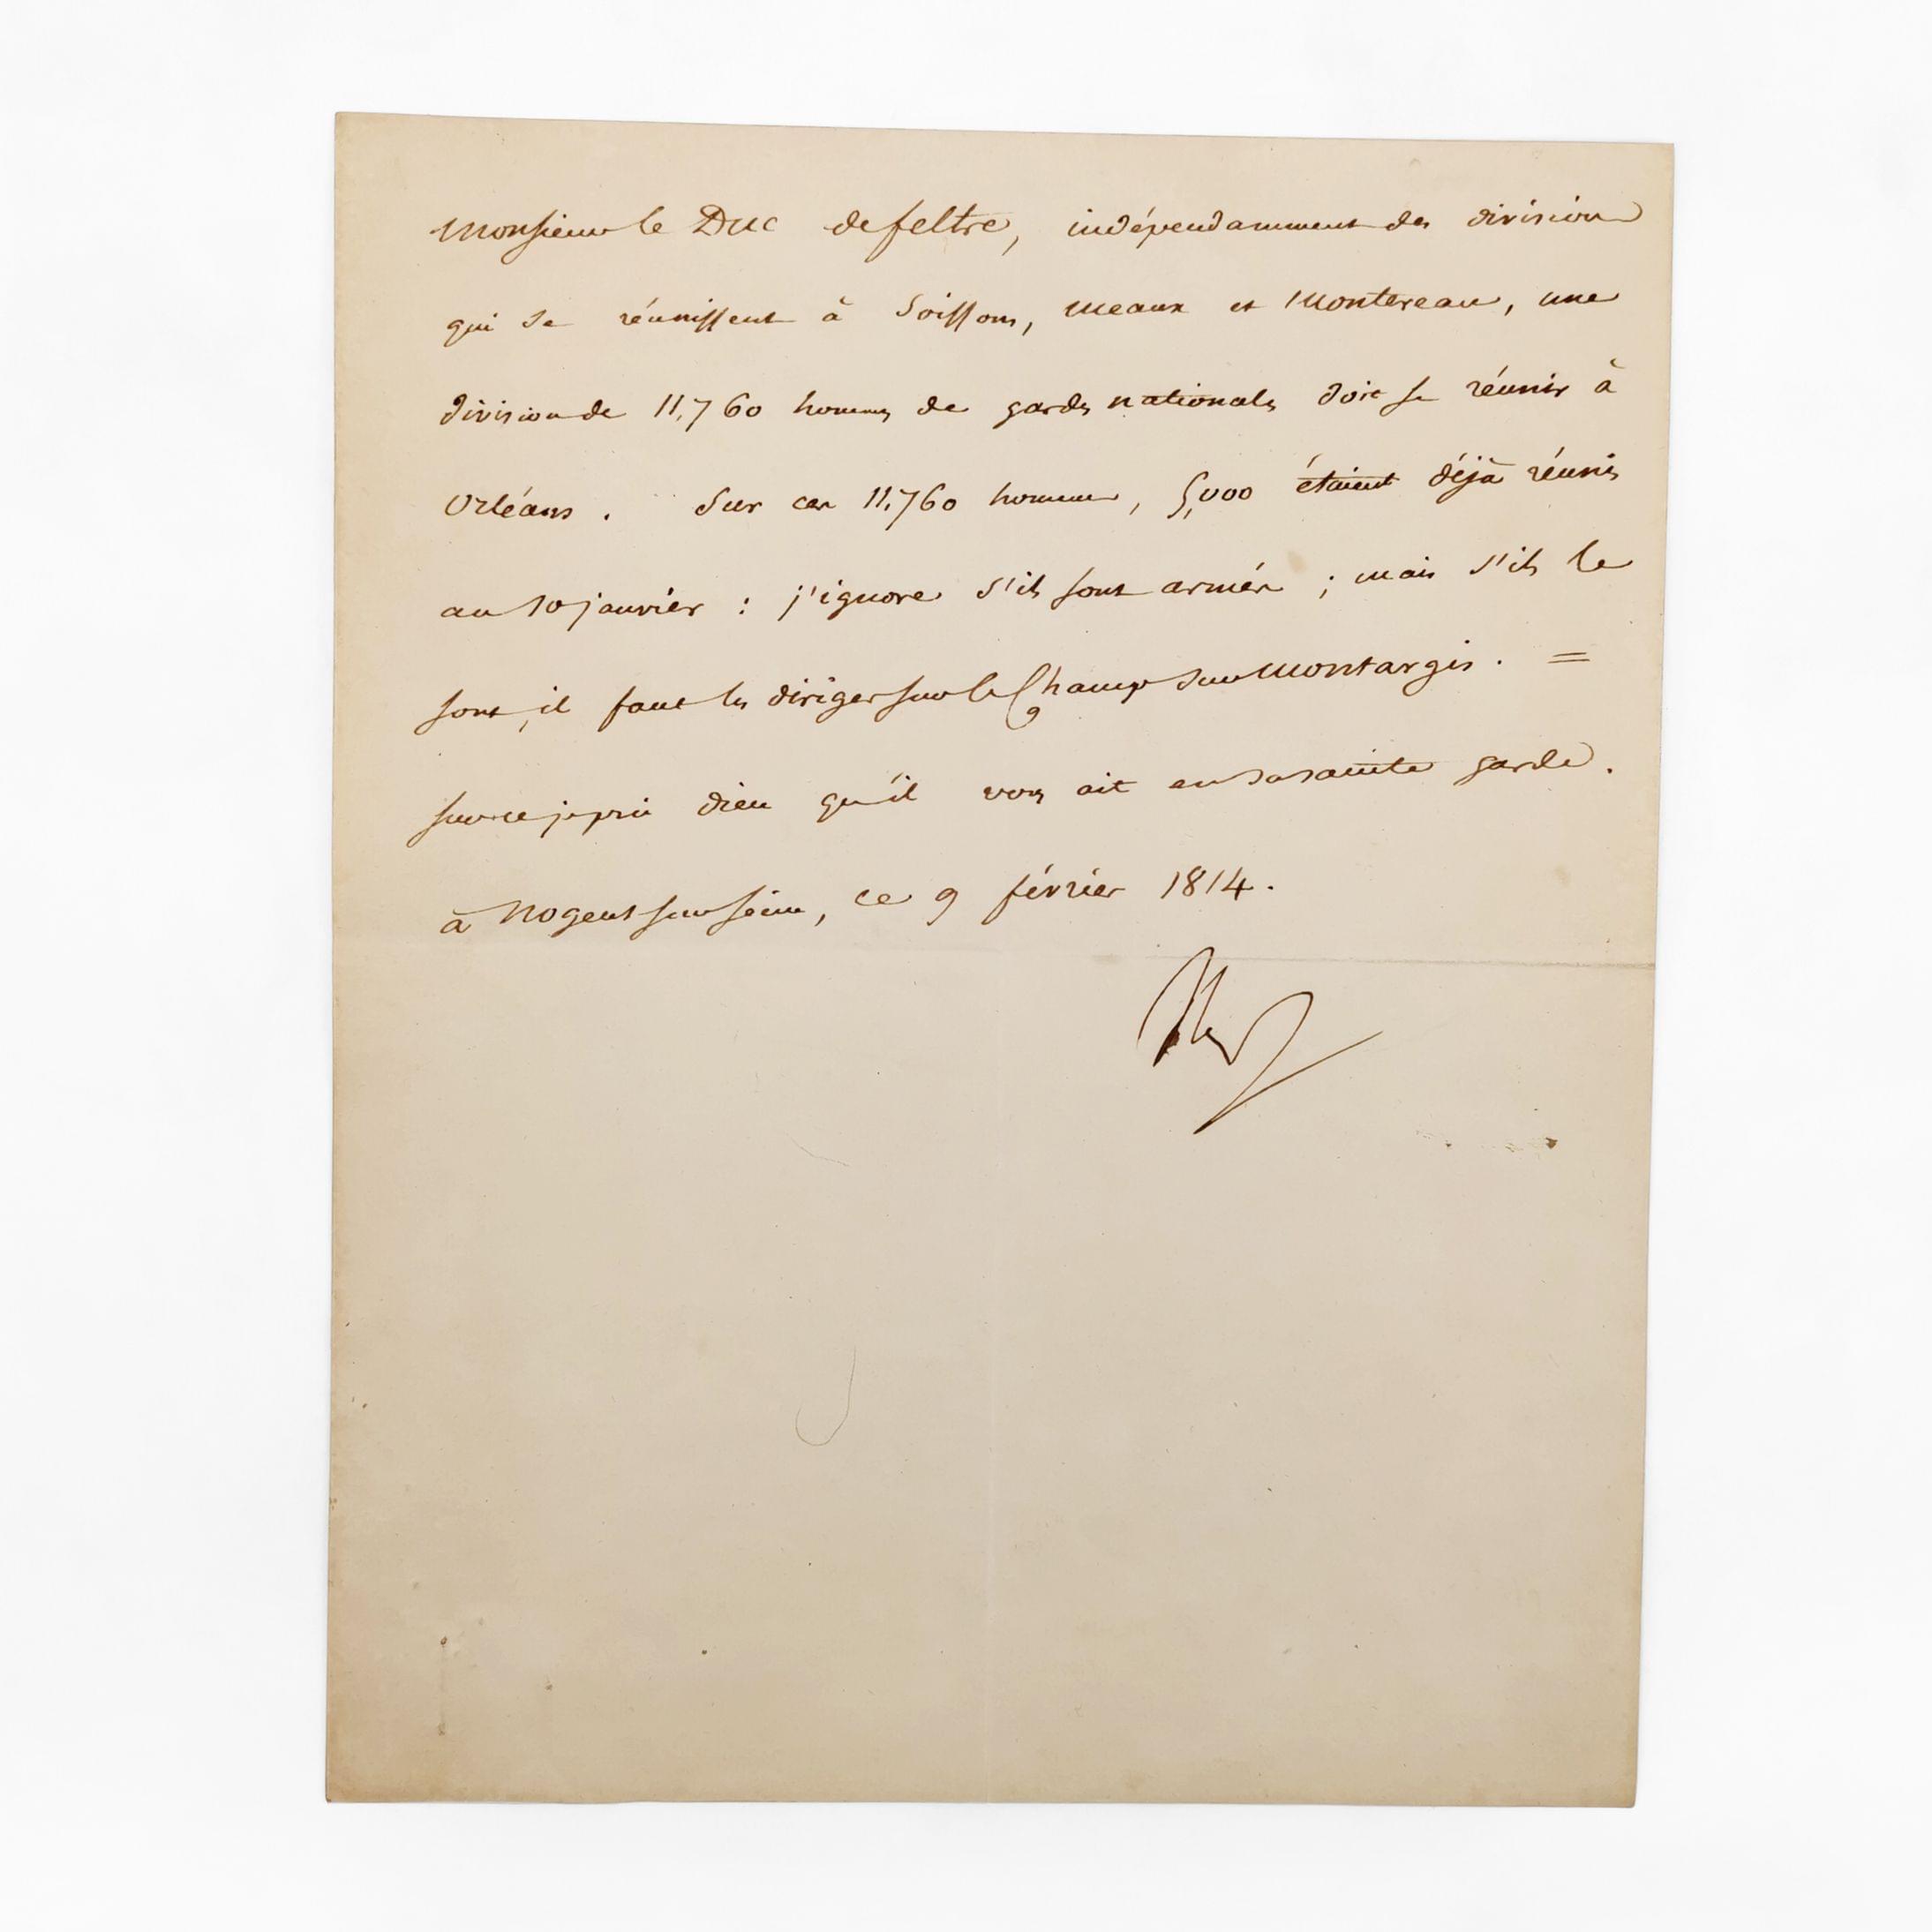 Monsieur le Duc de feltre, indépendamment des divisions
qui se réunissent à Soissons, Meaux et Montereau, une
division de 11,760 hommes de gardes nationales doit se réunir à
Orléans. Sur ces 11,760 hommes, 5,000 étaient déjà réunis
au 10 janvier : j'ignore s'ils sont armés ; mais s'ils le
sont, il faut les diriger sur le Champ sur Montargis. =
sur ce je prie dieu qu'il vous ait en sa sainte garde.
à Nogent sur Seine, ce 9 février 1814.
Nap